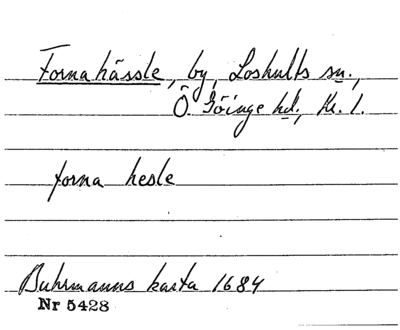 Fornahässle, by, Loshults sn.,
Ö. Göinge hd., Kr. l.
forna hesle
Buhrmanns karta 1684
Nr 5428